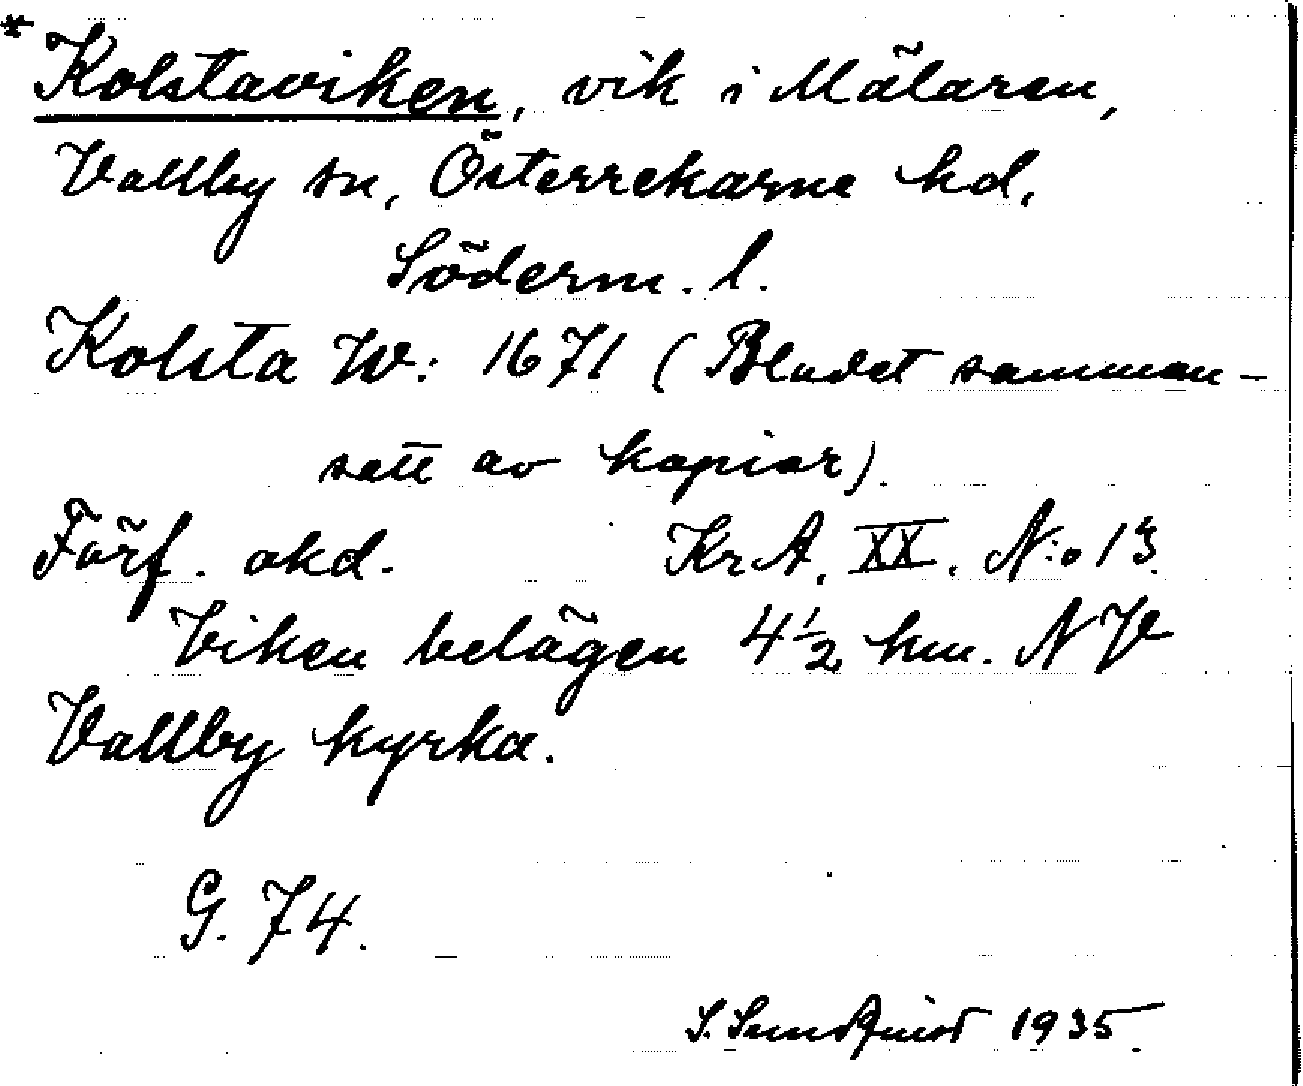 * Kolstaviken, vik i Mälaren,
Vallby sn, Österrekarne hd,
Söderm. l.
Kolsta W: 1671 (Bladet samman-
satt av kopior).
Förf. okd. KrA. XX. N:o 13.
Viken belägen 4½ km. NV
Vallby kyrka.
G. 74.
S. Sundquist 1935.